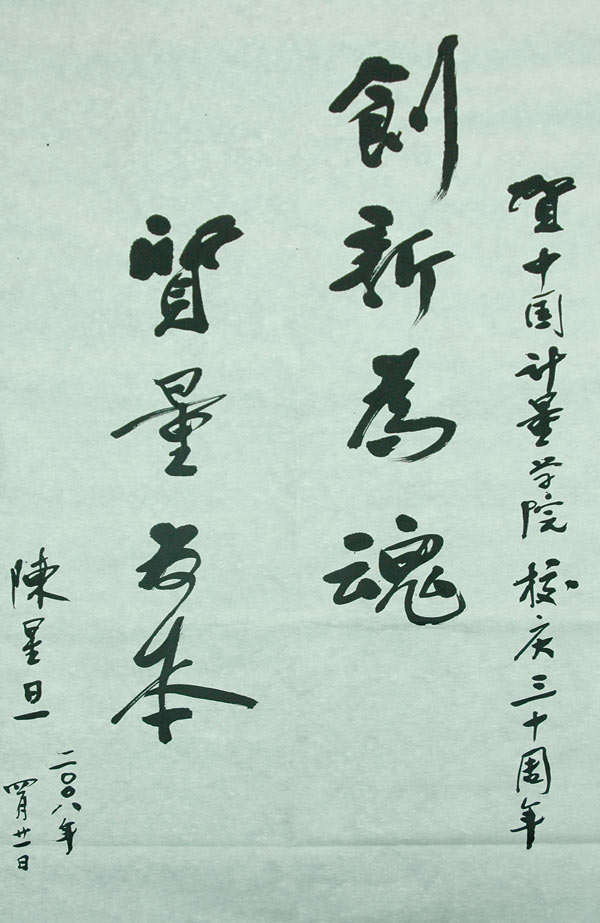 賀中国计量学院校庆三十周年
創新為魂
質量为本
陳星旦
二〇〇八年
四月廿一日